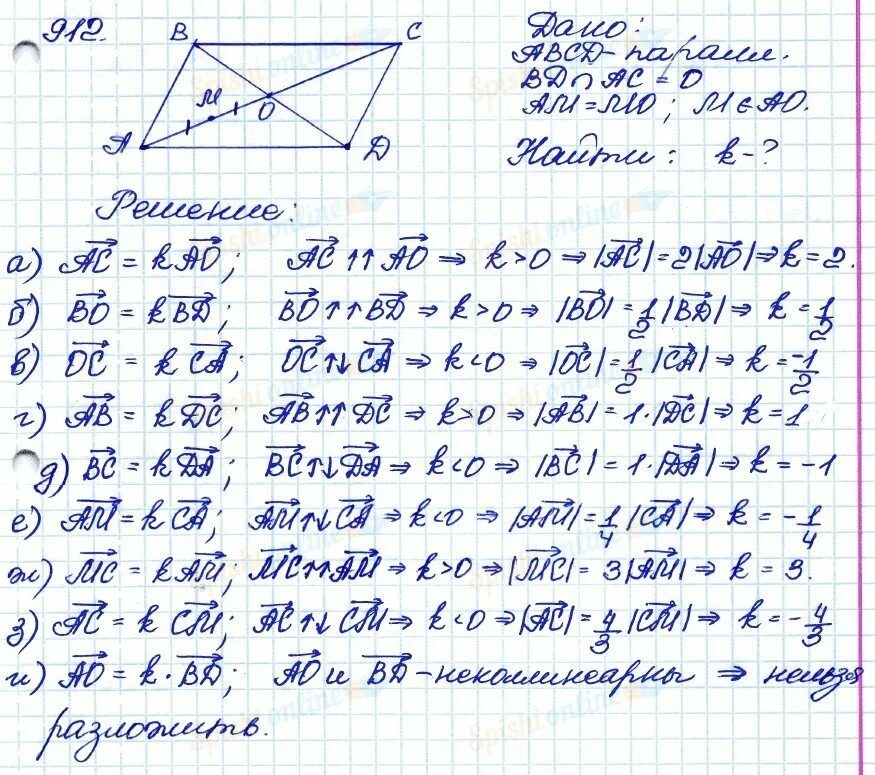 912.
B C
M
O
A D
Дано:
ABCD - паралл.
BD ∩ AC = O
AM = MO ; M ∈ AO.
Найти : k - ?
Решение:
а) AC→ = k AO→ ; AC→ ↑↑ AO→ ⇒ k > 0 ⇒ |AC→| = 2|AO→| ⇒ k = 2.
б) BO→ = k BD→ ; BO→ ↑↑ BD→ ⇒ k > 0 ⇒ |BO→| = 1/2 |BD→| ⇒ k = 1/2
в) OC→ = k CA→ ; OC→ ↑↓ CA→ ⇒ k < 0 ⇒ |OC→| = 1/2 |CA→| ⇒ k = -1/2
г) AB→ = k DC→ ; AB→ ↑↑ DC→ ⇒ k > 0 ⇒ |AB→| = 1·|DC→| ⇒ k = 1
д) BC→ = k DA→ ; BC→ ↑↓ DA→ ⇒ k < 0 ⇒ |BC→| = 1·|DA→| ⇒ k = -1
е) AM→ = k CA→ ; AM→ ↑↓ CA→ ⇒ k < 0 ⇒ |AM→| = 1/4 |CA→| ⇒ k = -1/4
ж) MC→ = k AM→ ; MC→ ↑↑ AM→ ⇒ k > 0 ⇒ |MC→| = 3|AM→| ⇒ k = 3.
з) AC→ = k CM→ ; AC→ ↑↓ CM→ ⇒ k < 0 ⇒ |AC→| = 4/3 |CM→| ⇒ k = -4/3
и) AO→ = k · BD→ ; AO→ и BD→ - неколлинеарны ⇒ нельзя
разложить.